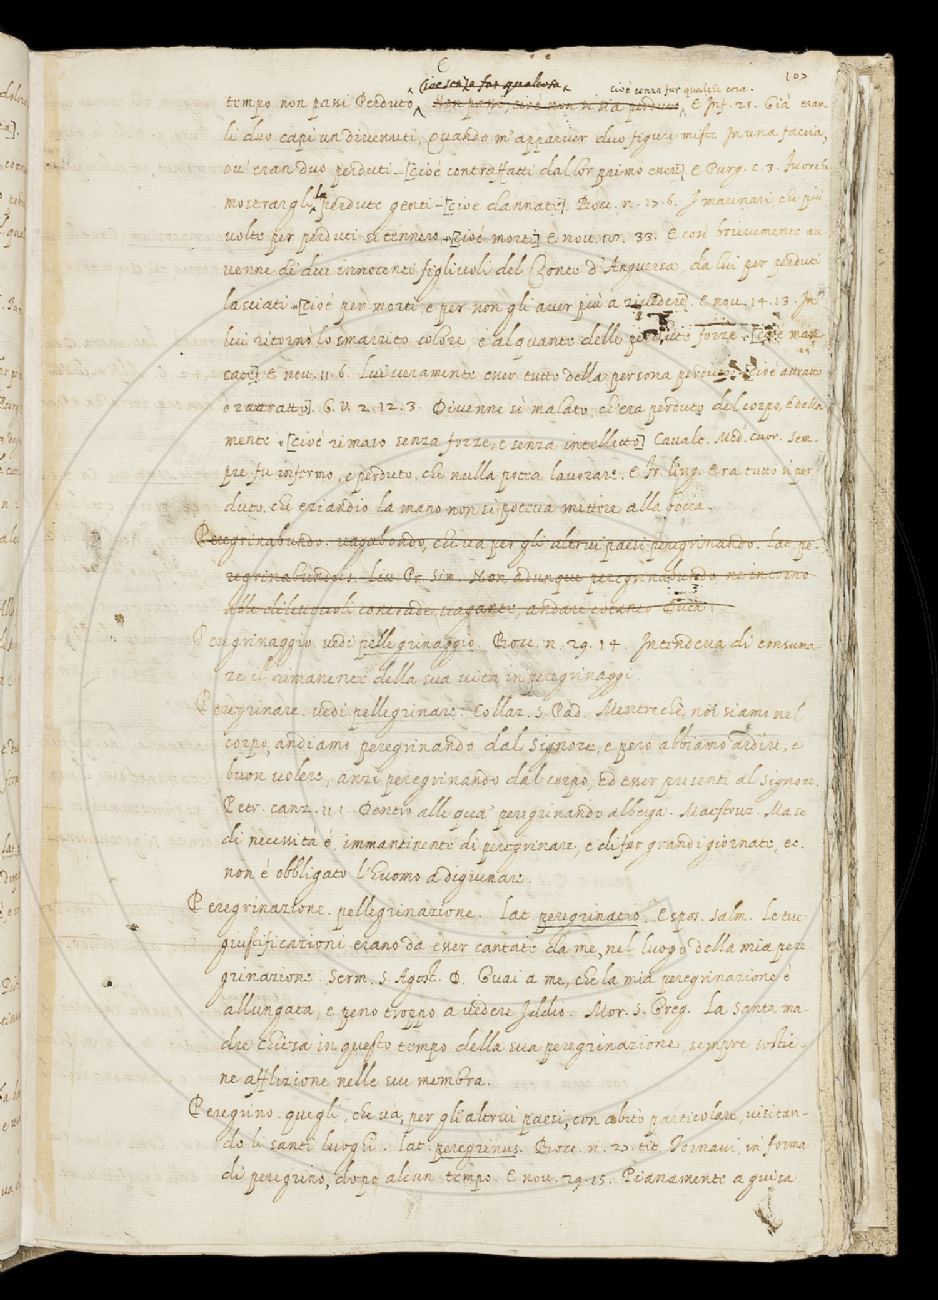 107
cioè senza far qualcosa
cioè senza far qualche cosa.
tempo non passi Perduto, Non passi, cioè non si sia perduto, E Inf. 25. Già eran
li duo capi un divenuti, Quando m'apparver duo figure miste In una faccia,
ov' eran duo perduti - [cioè contraffatti dal lor primo essere] E Purg. c. 3.
mostrargli le perdute genti - [cioè dannate]. Bocc. n. 17. 6. I marinari che più
volte per perduti si tennero - [cioè morti] E nov. 33. E così brievemente av-
venne de' due innocenti figlivoli del Conte d'Anguersa, da lui per perduti
lasciati - [cioè per morti, e per non gli aver più a rivedere]. E nov. 14. 13. In
lui ritornò lo smarrito colore, e alquante delle perdute forze - [cioè man-
cate] E nov. 11. 6. Lui veramente esser tutto della persona perduto - cioè attratto
o rattratto]. G. V. 2. 12. 3. Divenne sì malato, ch' era perduto del corpo, e della
mente - [cioè rimaso senza forze, e senza intelletto] Cavalc. Med. cuor. Sem-
pre fu infermo, e perduto, che nulla potea lavorare. E Fr. ling. Era tutto sì per-
duto, che eziandio la mano non si poteva mettere alla bocca.
Peregrinabundo. vagabondo, che va per gli altrui paesi peregrinando. Lat. pe-
regrinabundus. Non adunque peregrinabundo ne intorno
alle dilettevoli contrade, vagante, andare
Peregrinaggio. vedi pellegrinaggio. Bocc. n. 29. 14. Intendeva di consuma-
re il rimanente della sua vita in peregrinaggi.
Peregrinare. vedi pellegrinare. Collaz. S. Pad. Mentre che noi siamo nel
corpo, andiamo peregrinando dal Signore, e però abbiamo ardire, e
buon volere, anzi peregrinando dal corpo, ed esser presenti al Signore.
Petr. canz. Dentro alle qua' peregrinando alberga. Maestruz. Ma se
di necessità è immantinente di peregrinare, e di far grandi giornate, ec.
non è obbligato l'huomo a digiunare.
Peregrinazione. pellegrinazione. Lat. peregrinatio. Espos. Salm. Le tue
giustificazioni erano da esser cantate da me, nel luogo della mia pere-
grinazione. Serm. S. Agost. D. Guai a me, che la mia peregrinazione è
allungata, e peno troppo a vedere Iddio. Mor. S. Greg. La santa ma-
dre Chiesa in questo tempo della sua peregrinazione, sempre sostie-
ne afflizione nelle sue membra.
Peregrino. quegli, che va, per gli altrui paesi, con abito particolare, visitan-
do li santi luoghi. Lat. peregrinus. Bocc. n. 27. tit. Tornavi, in forma
di peregrino, dopo alcun tempo. E nov. 29. 15. Pianamente a guisa